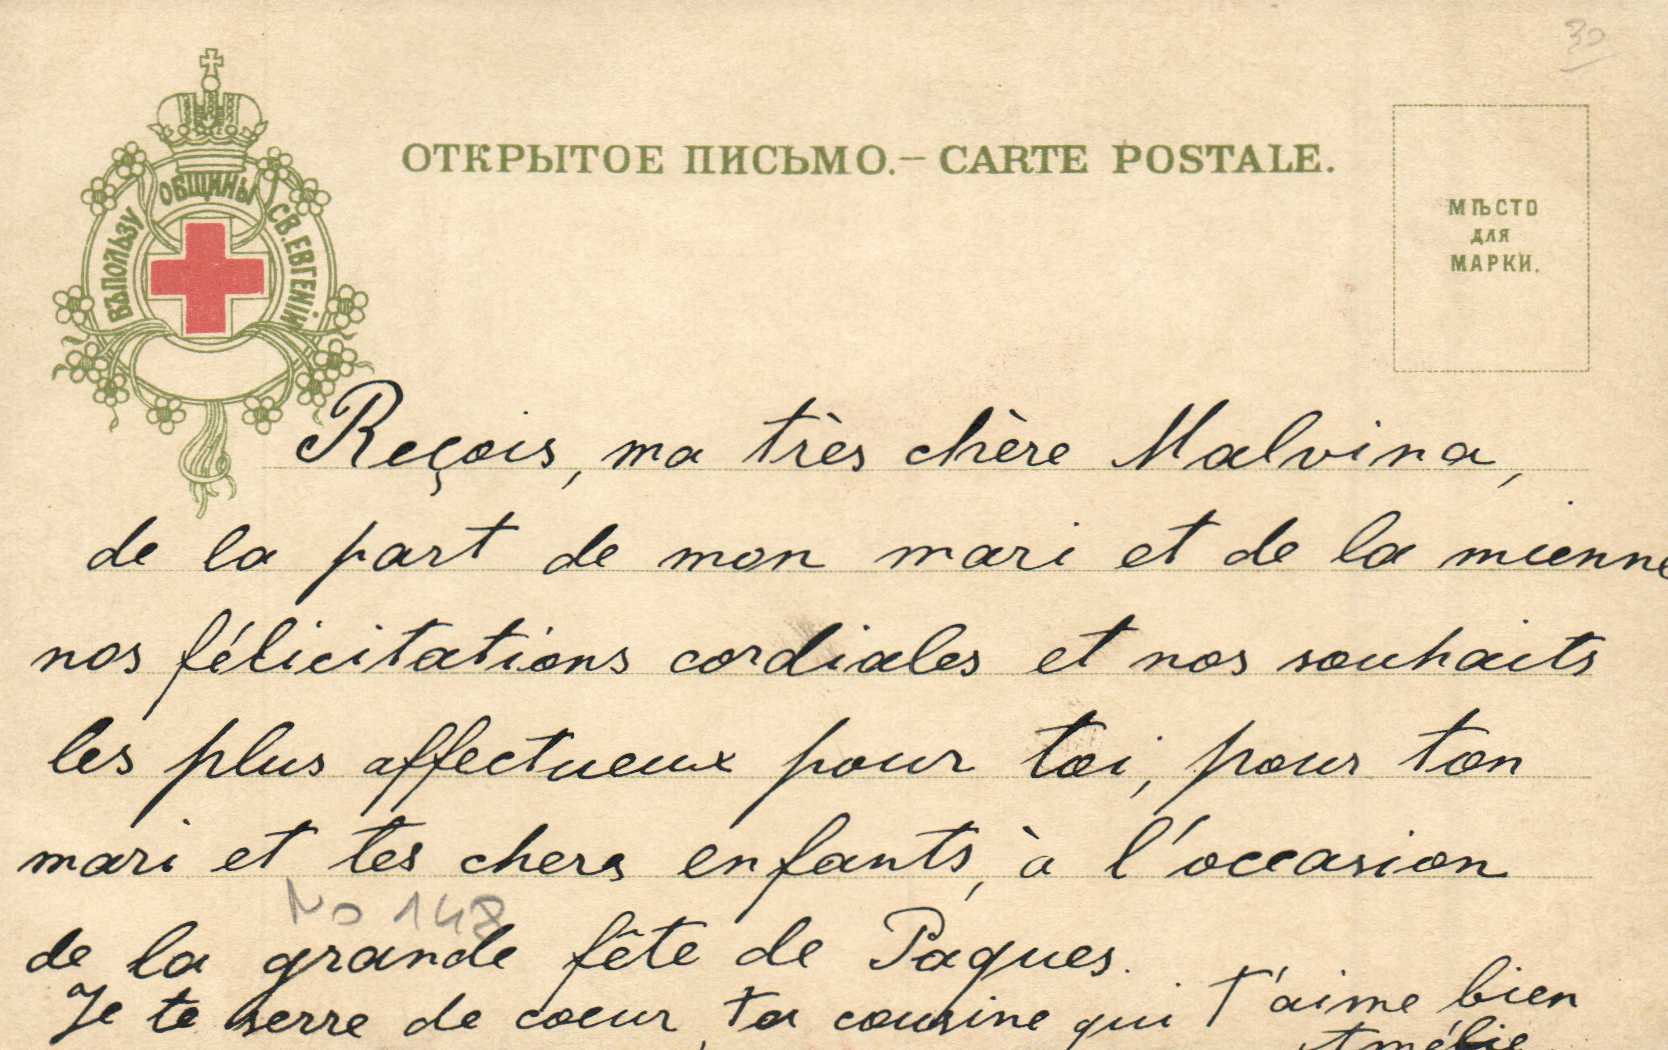 30
ОТКРЫТОЕ ПИСЬМО.— CARTE POSTALE.
ВЪ ПОЛЬЗУ ОБЩИНЫ СВ. ЕВГЕНІИ
МѢСТО
ДЛЯ
МАРКИ.
Reçois, ma très chère Malvina,
de la part de mon mari et de la mienne
nos félicitations cordiales et nos souhaits
les plus affectueux pour toi, pour ton
mari et tes chers enfants, à l'occasion
No 148
de la grande fête de Paques.
Je te serre de coeur, ta cousine qui t'aime bien
Amélie